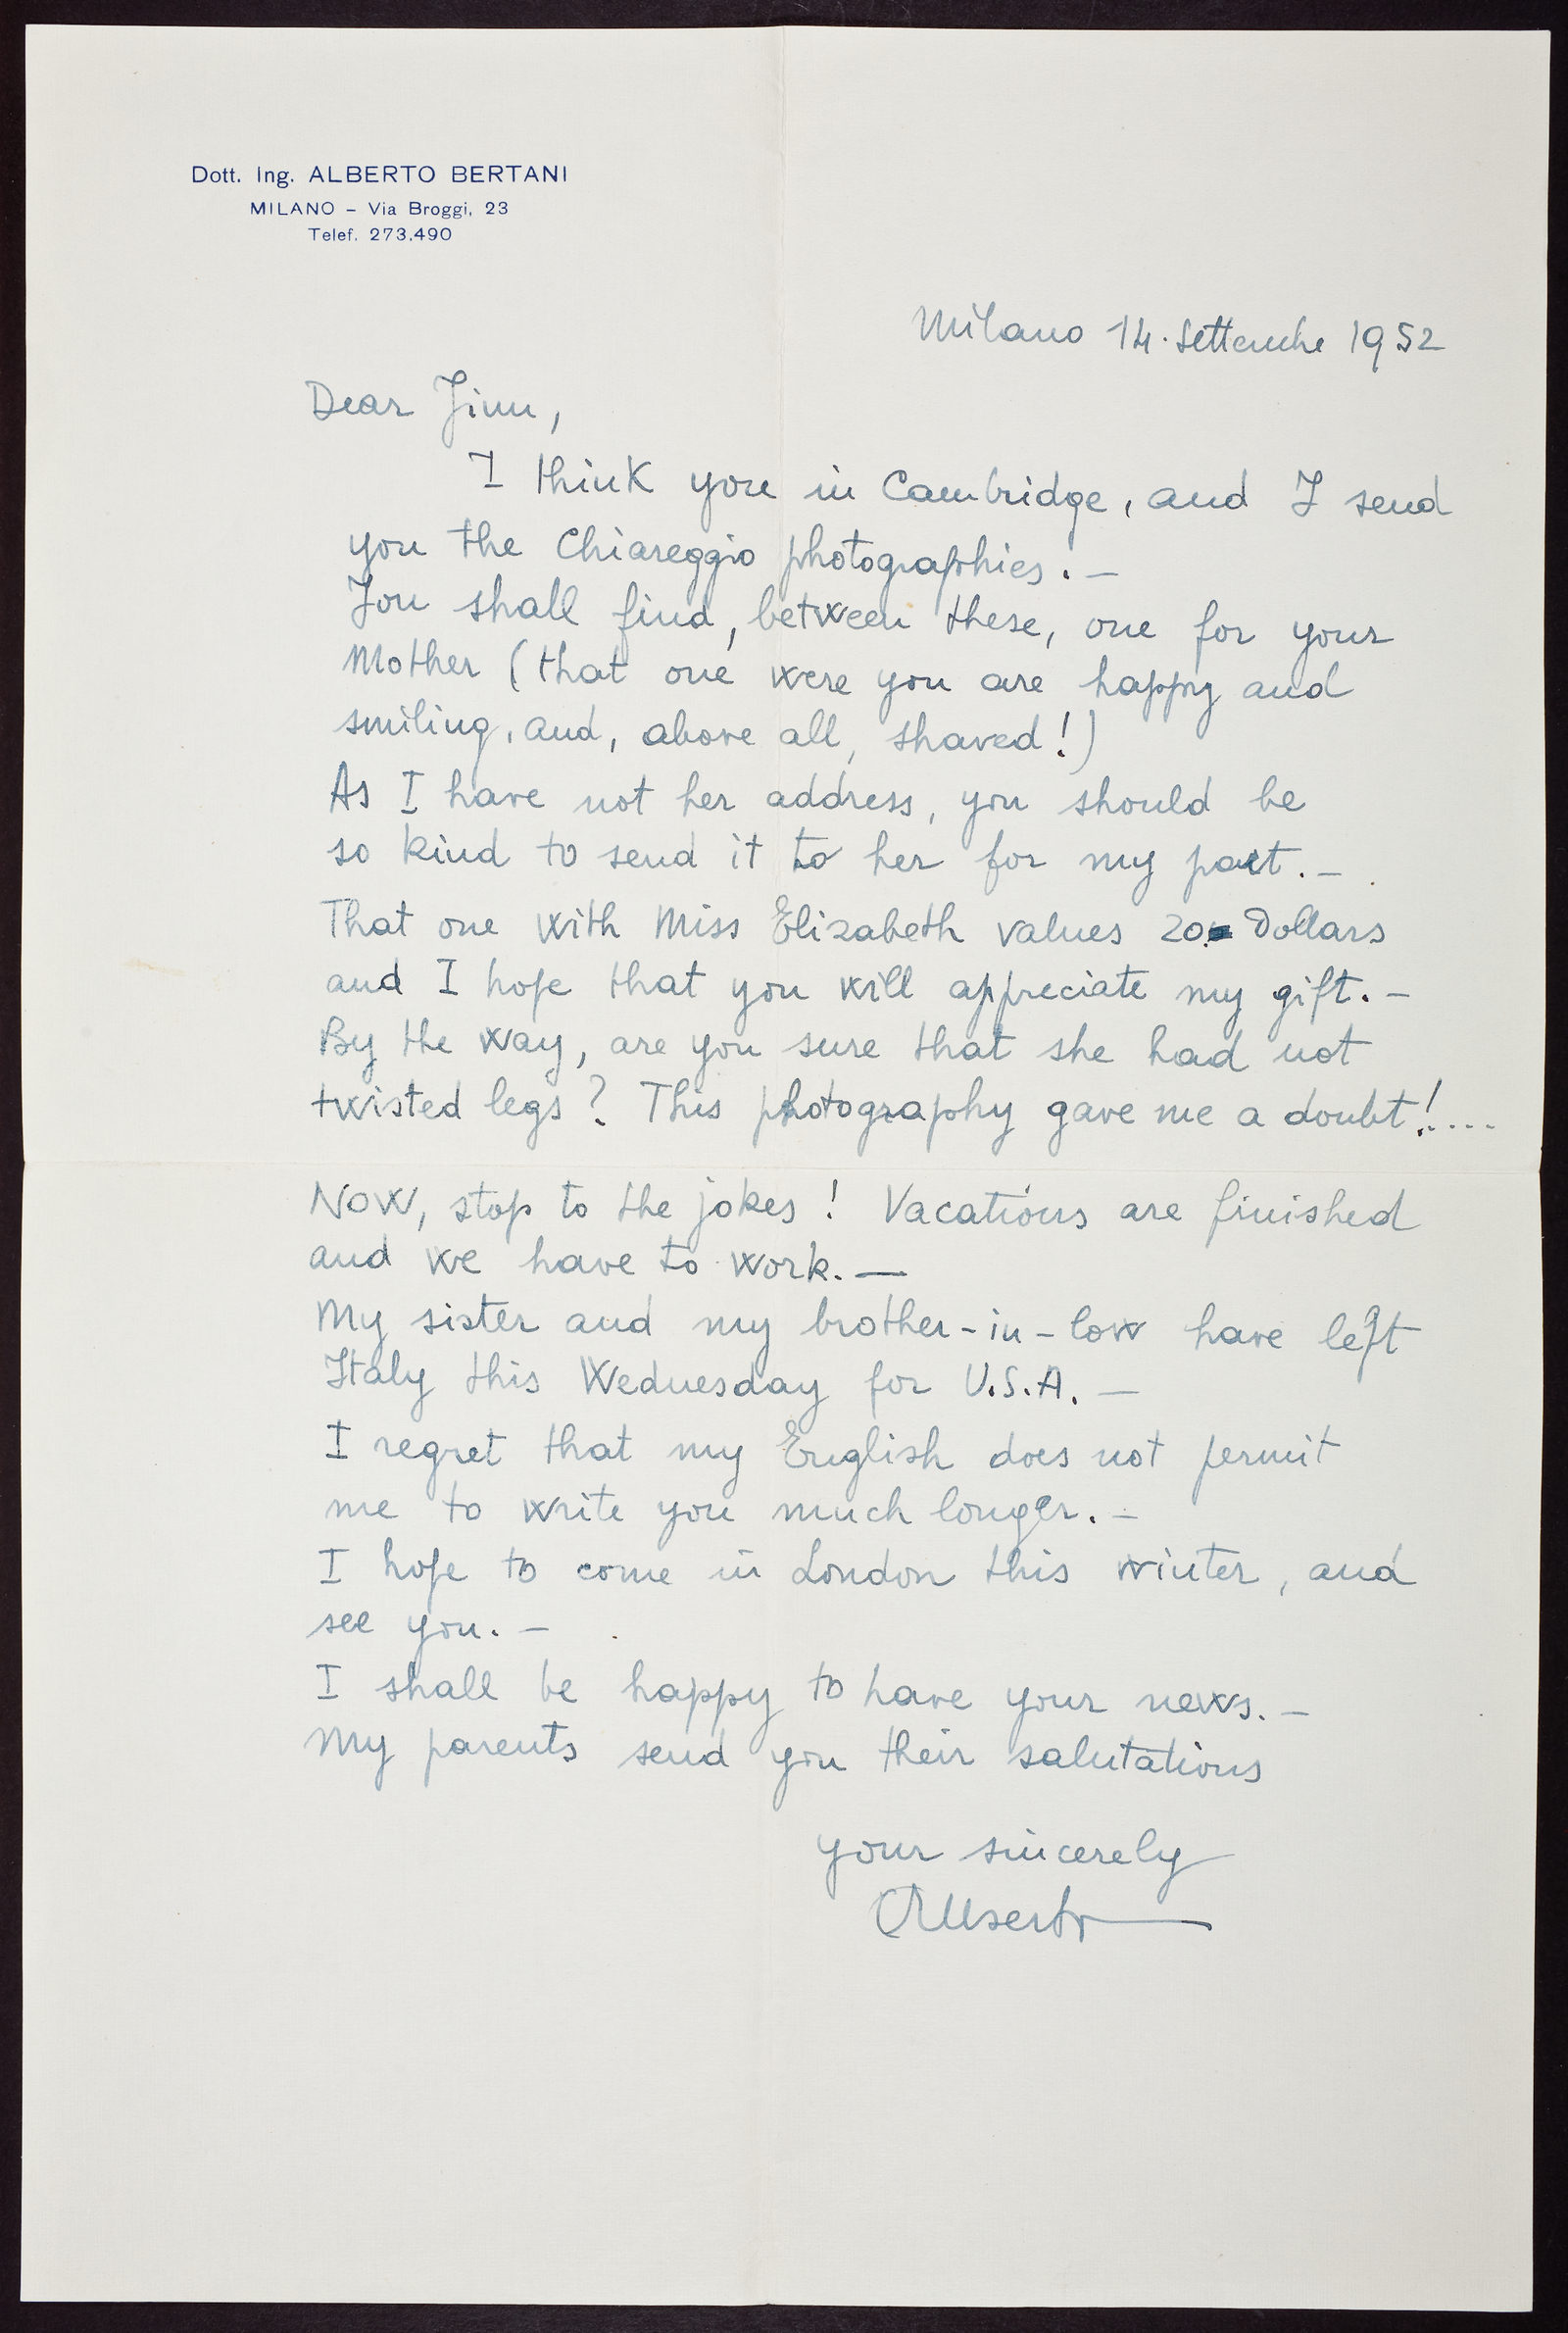 Dott. Ing. ALBERTO BERTANI
MILANO - Via Broggi, 23
Telef. 273.490
Milano 14. Settembre 1952
Dear Jim,
I think you in Cambridge, and I send
you the Chiareggio photographies. -
You shall find, between these, one for your
Mother (that one were you are happy and
smiling, and, above all, shaved!)
As I have not her address, you should be
so kind to send it to her for my part. -
That one with Miss Elizabeth values 20 Dollars
and I hope that you will appreciate my gift. -
By the way, are you sure that she had not
twisted legs? This photography gave me a doubt!....
Now, stop to the jokes! Vacations are finished
and we have to work. -
My sister and my brother-in-low have left
Italy this Wednesday for U.S.A. -
I regret that my English does not permit
me to write you much longer. -
I hope to come in London this winter, and
see you. -
I shall be happy to have your news. -
My parents send you their salutations
your sincerely
Alberto